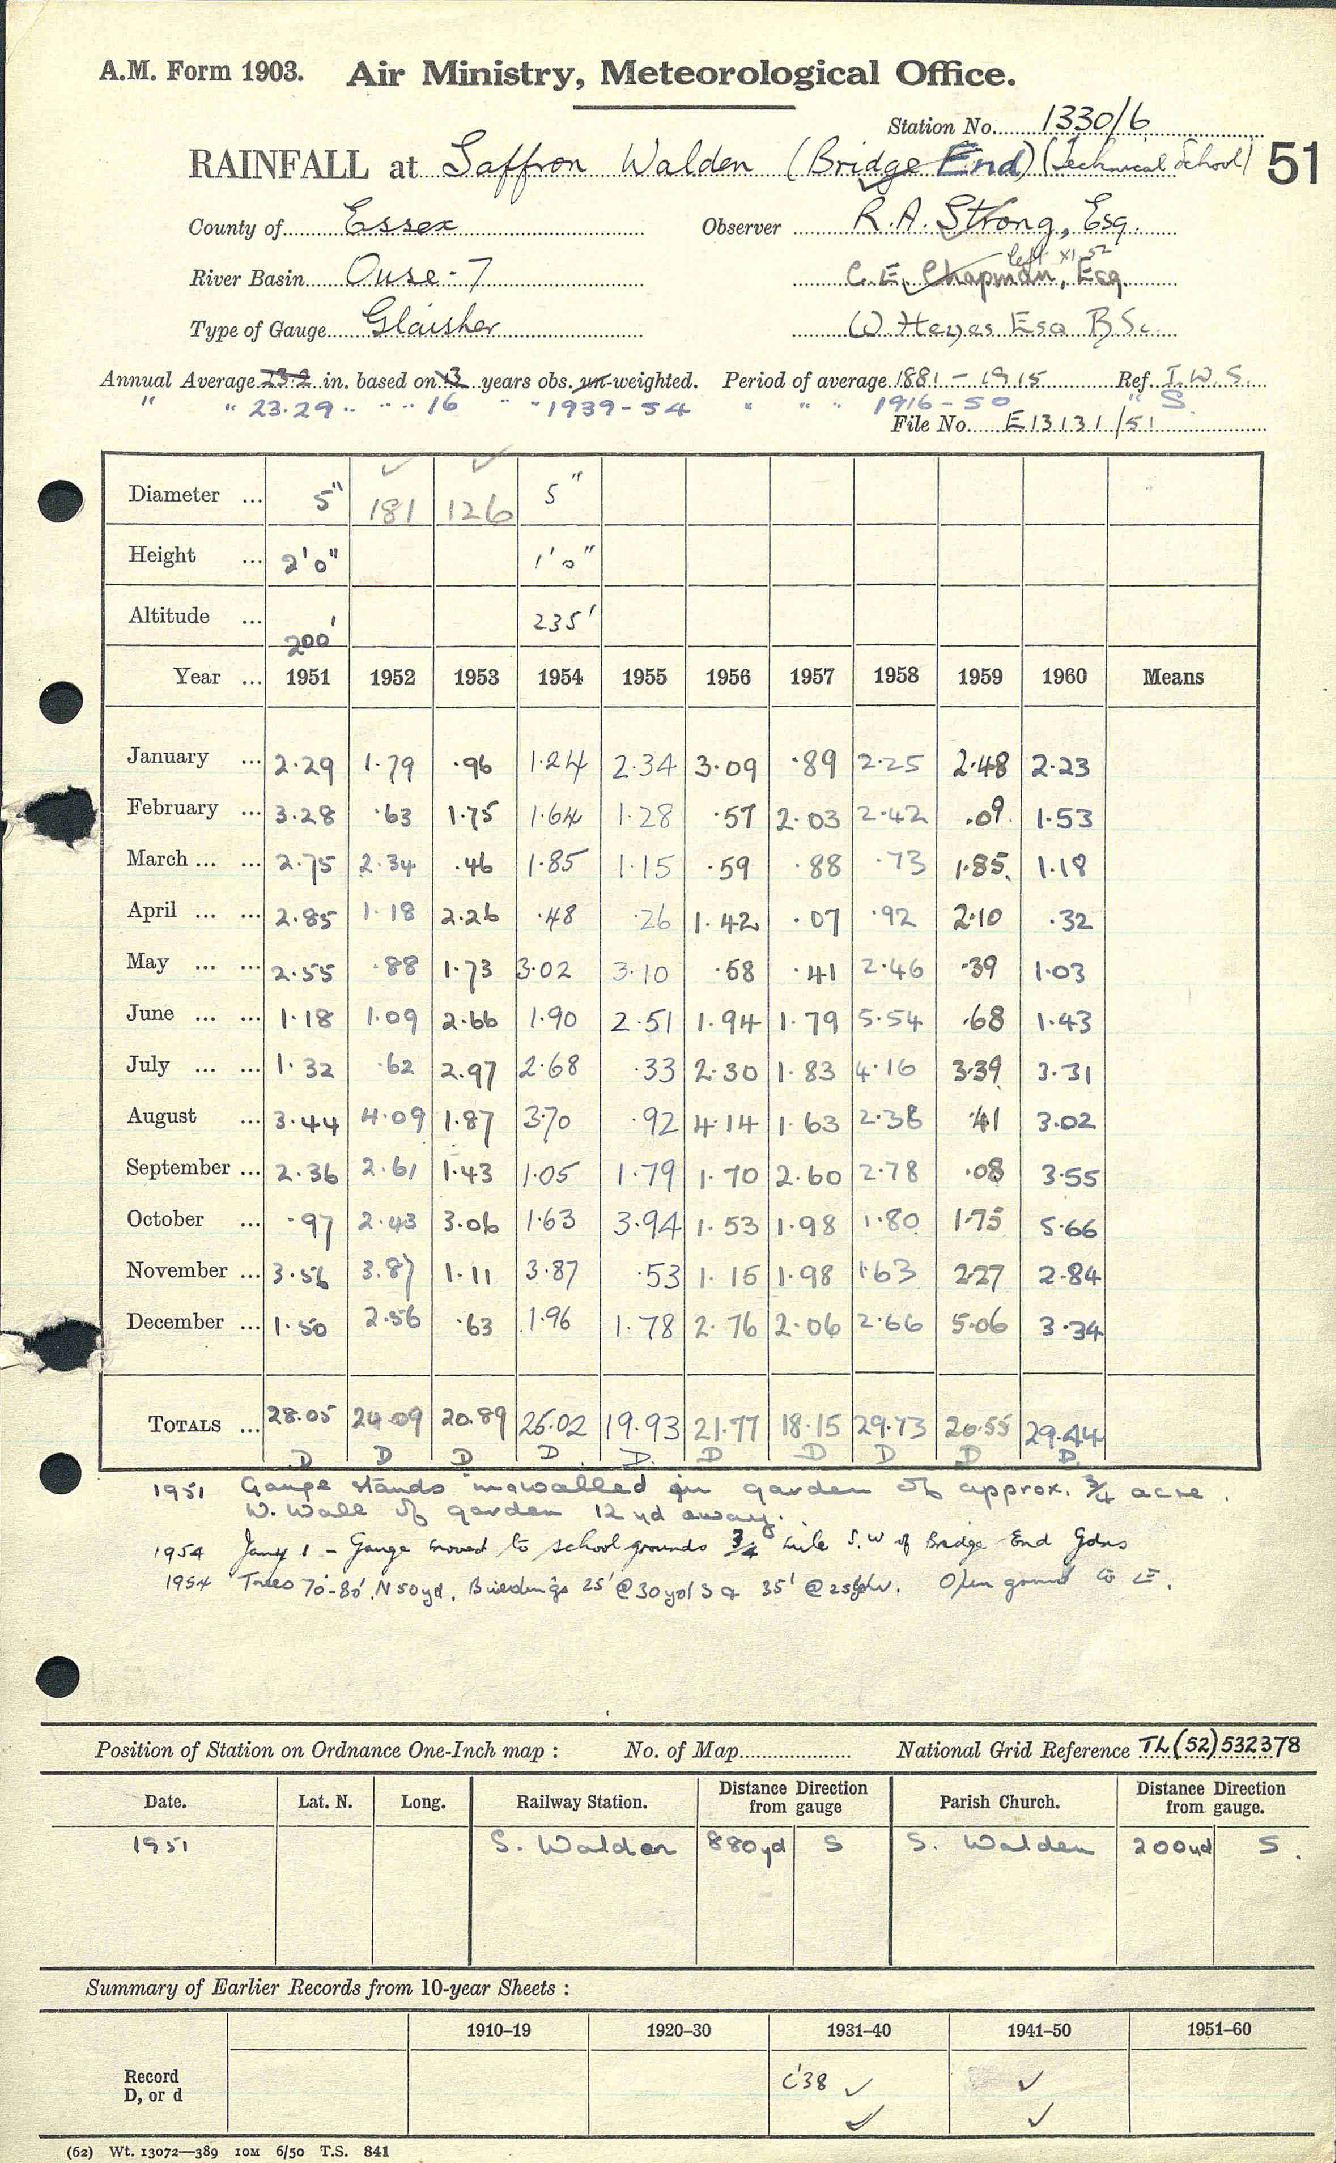 A.M. Form 1903. Air Ministry, Meteorological Office.
Station No. 1330/6
RAINFALL at Saffron Walden (Bridge End) (Technical School) 51
County of Essex Observer R. A. Strong, Esq.
left XI 52
River Basin Ouse - 7 C. E. Chapman, Esq.
Type of Gauge Glaisher W. Heyes Esq B.Sc.
Annual Average 23.2 in. based on 13 years obs. un-weighted. Period of average 1881 - 1915 Ref. I.W.S.
" " 23.29 " " " 16 " " 1939-54 " " " 1916-50 " S.
File No. E13131/51
Diameter ... 5" 181 126 5"
Height ... 2'0" 1'0"
Altitude ... 200' 235'
Year ... 1951 1952 1953 1954 1955 1956 1957 1958 1959 1960 Means
January ... 2.29 1.79 .96 1.24 2.34 3.09 .89 2.25 2.48 2.23
February ... 3.28 .63 1.75 1.64 1.28 .57 2.03 2.42 .09 1.53
March ... ... 2.75 2.34 .46 1.85 1.15 .59 .88 .73 1.85 1.18
April ... ... 2.85 1.18 2.26 .48 .26 1.42 .07 .92 2.10 .32
May ... ... 2.55 .88 1.73 3.02 3.10 .58 .41 2.46 .39 1.03
June ... ... 1.18 1.09 2.66 1.90 2.51 1.94 1.79 5.54 .68 1.43
July ... ... 1.32 .62 2.97 2.68 .33 2.30 1.83 4.16 3.39 3.31
August ... 3.44 4.09 1.87 3.70 .92 4.14 1.63 2.38 .41 3.02
September ... 2.36 2.61 1.43 1.05 1.79 1.70 2.60 2.78 .08 3.55
October ... .97 2.43 3.06 1.63 3.94 1.53 1.98 1.80 1.75 5.66
November ... 3.56 3.87 1.11 3.87 .53 1.15 1.98 1.63 2.27 2.84
December ... 1.50 2.56 .63 1.96 1.78 2.76 2.06 2.66 5.06 3.34
TOTALS ... 28.05 24.09 20.89 25.02 19.93 21.77 18.15 29.73 20.55 29.44
D D D D D D D D D D
1951 Gauge stands in walled garden of approx. 3/4 acre.
W. Wall of garden 12 yd away.
1954 Jany 1 - Gauge moved to school grounds 3/4 mile S.W of Bridge End Gdns
1954 Trees 70'-80' N 50yd. Buildings 25' @ 30yd S & 35' @ 25yd W. Open ground to E.
Position of Station on Ordnance One-Inch map : No. of Map National Grid Reference TL (52) 532378
Date. Lat. N. Long. Railway Station. Distance Direction from gauge Parish Church. Distance Direction from gauge.
1951 S. Walden 880yd S S. Walden 200yd S.
Summary of Earlier Records from 10-year Sheets :
1910–19 1920–30 1931–40 1941–50 1951–60
Record
D, or d
C'38 ✓ ✓
✓ ✓
(62) Wt. 13072—389 10M 6/50 T.S. 841